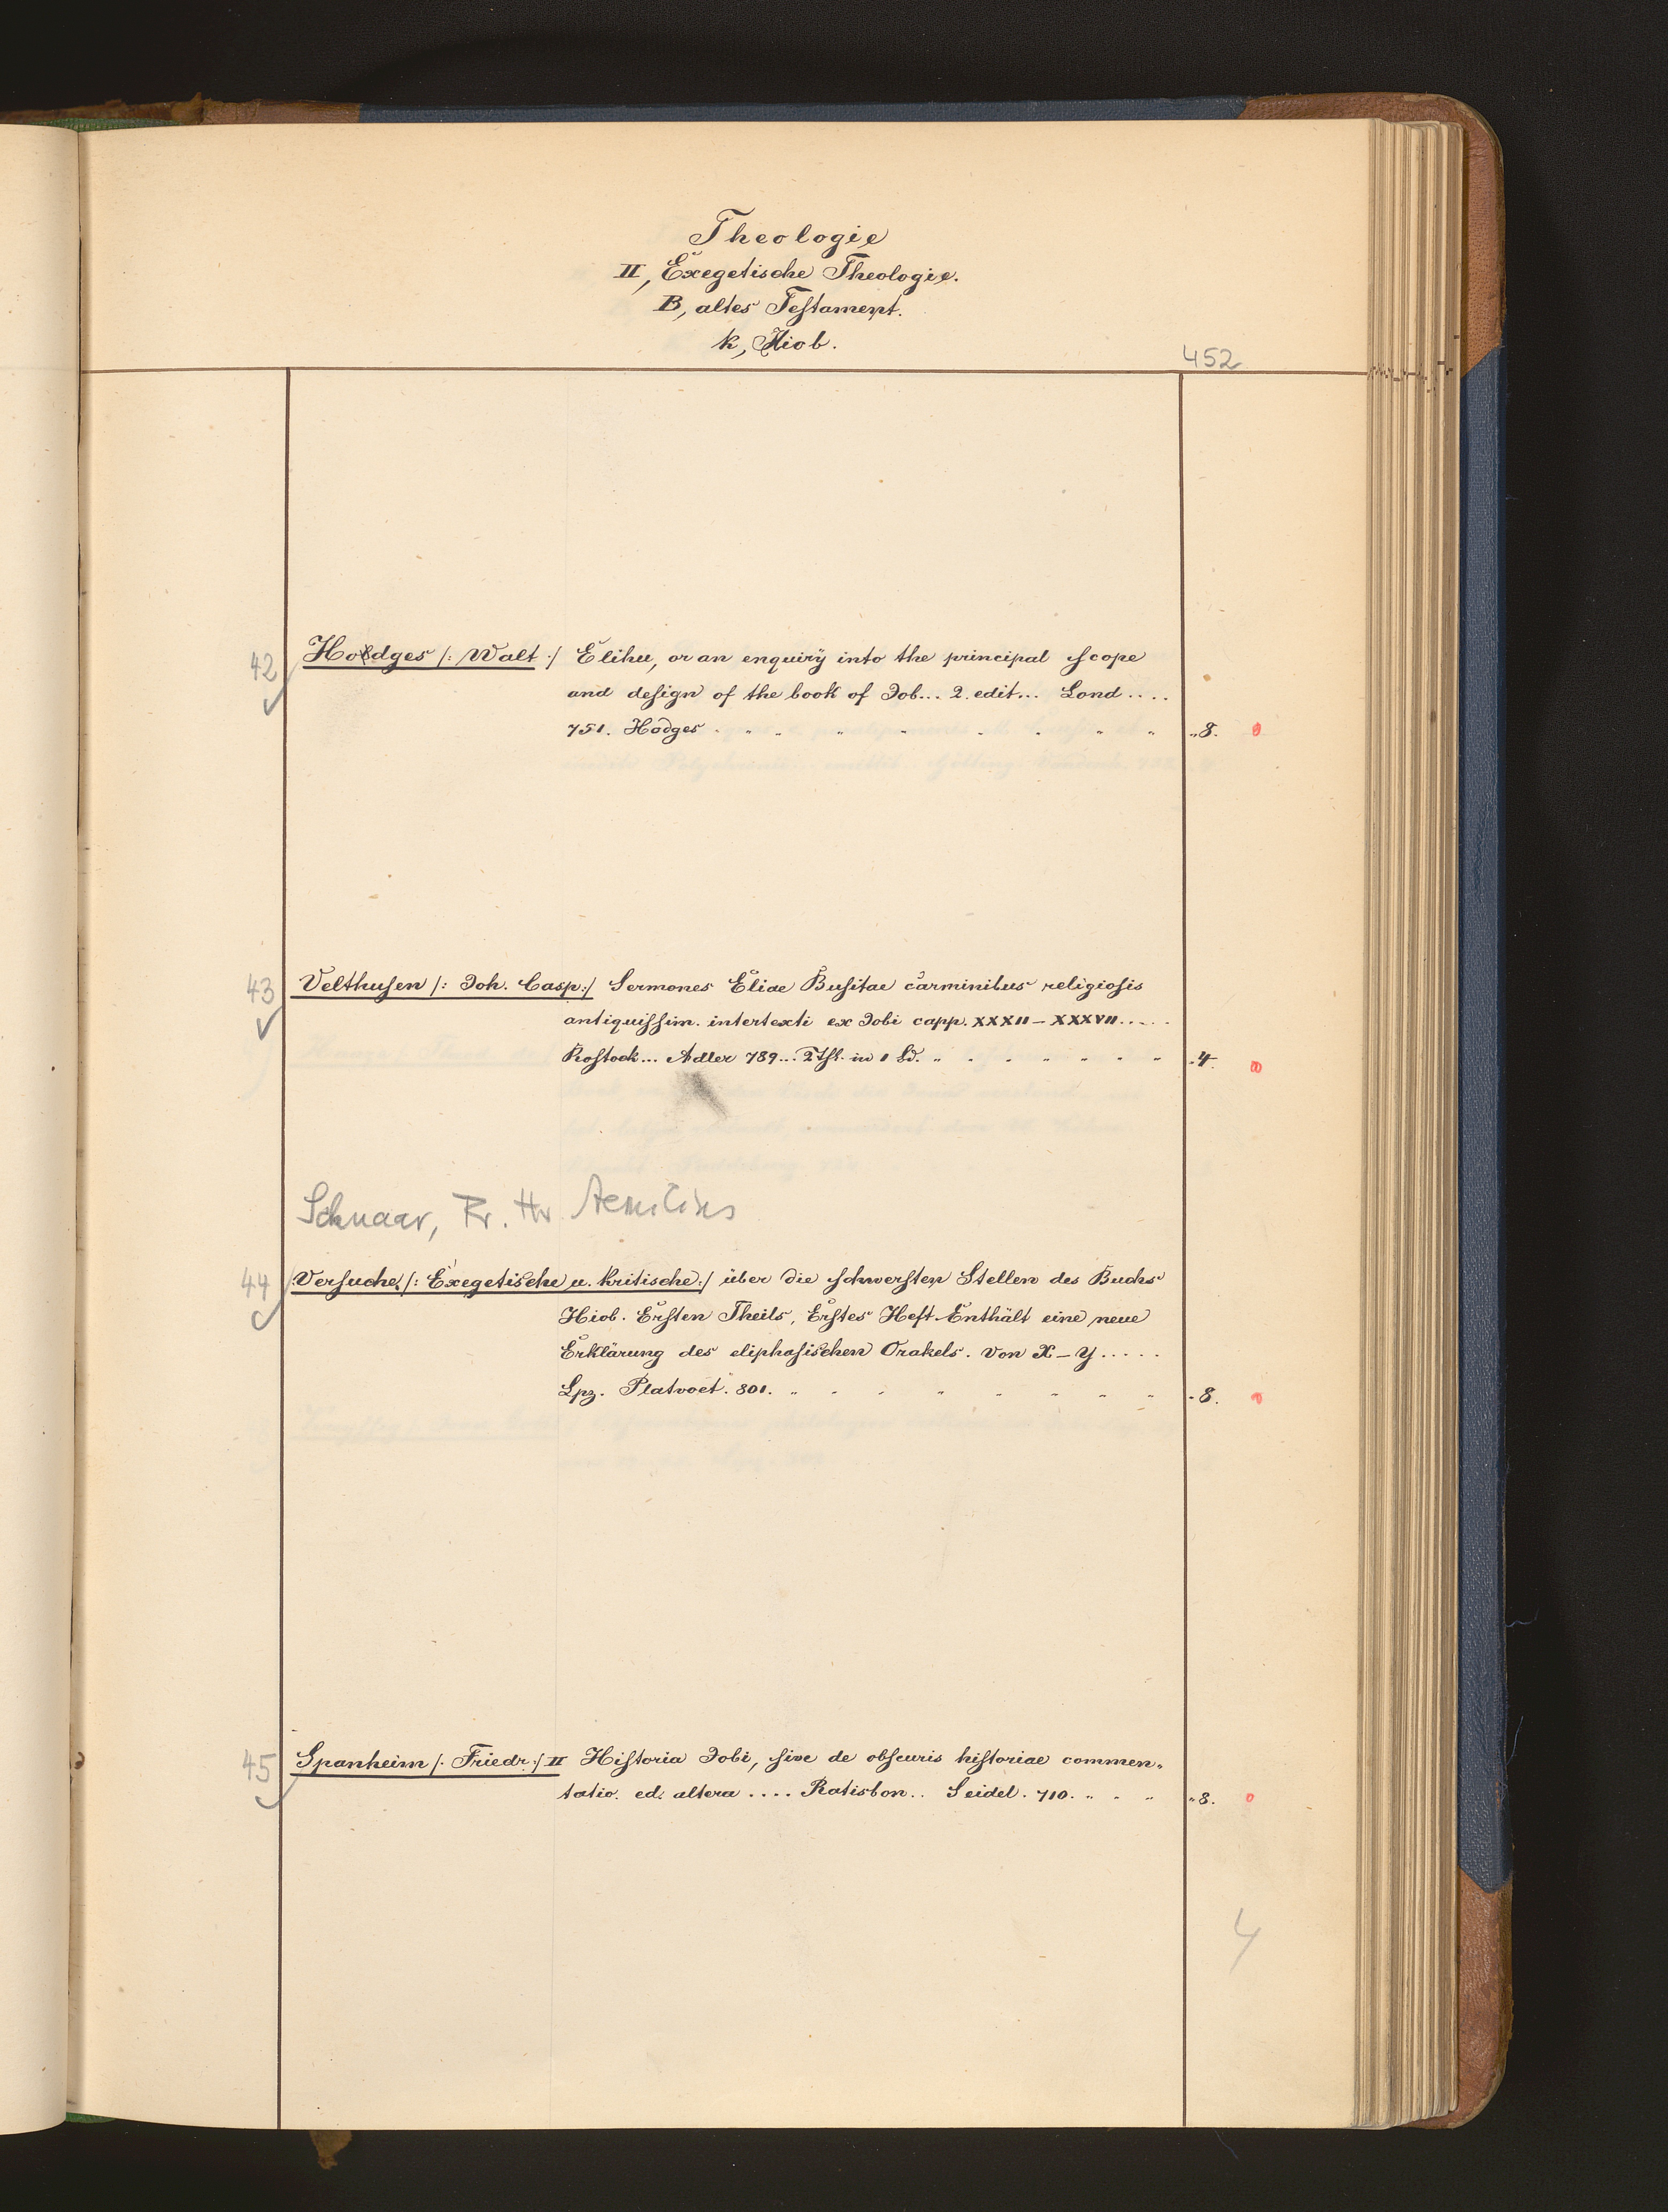 Theologie
II, Exegetische Theologie.
B, altes Testament.
k, Hiob.
452
42 Hodges /: Walt :/ Elihu, or an enquirÿ into the principal scope
and design of the book of Job... 2. edit... Lond....
751. Hodges . „ „ „ „ . . „ „ „8. 0
43 Velthusen /: Joh. Casp:/ Sermones Eliae Busitae carminibus religiosis
antiquissim. intertexti ex Jobi capp. XXXII – XXXVII.....
Rostock... Adler 789... 2 Thl. in 1 Bd. „ . . „ „ „ „ -4. 00
Schnaar, Fr. Hr. Aemilius
44 Versuche /: Exegetische u. Kritische:/ über die schwersten Stellen des Buchs
Hiob. Ersten Theils, Erstes Heft Enthält eine neue
Erklärung des eliphasischen Orakels. Von X – Y.....
Lpz. Platvoet. 801. „ „ „ „ „ „ „ „ -8. 0
45 Spanheim /: Friedr:/ II Historia Jobi, sive de obscuris historiae commen-
tatio. ed. altera .... Ratisbon.. Seidel. 710. „ . „ „8. 0
4